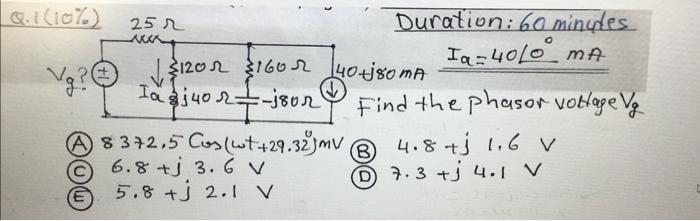 Q.1(10%) 25 Ω Duration: 60 minutes
Ia=40∠0° mA
Vg? ± 120Ω 160Ω 40+j80mA
Ia j40Ω -j80Ω Find the phasor voltage Vg
(A) 8372,5 Cos(wt+29.32°)mV (B) 4.8+j 1.6 V
(C) 6.8+j 3.6 V (D) 7.3+j 4.1 V
(E) 5.8+j 2.1 V